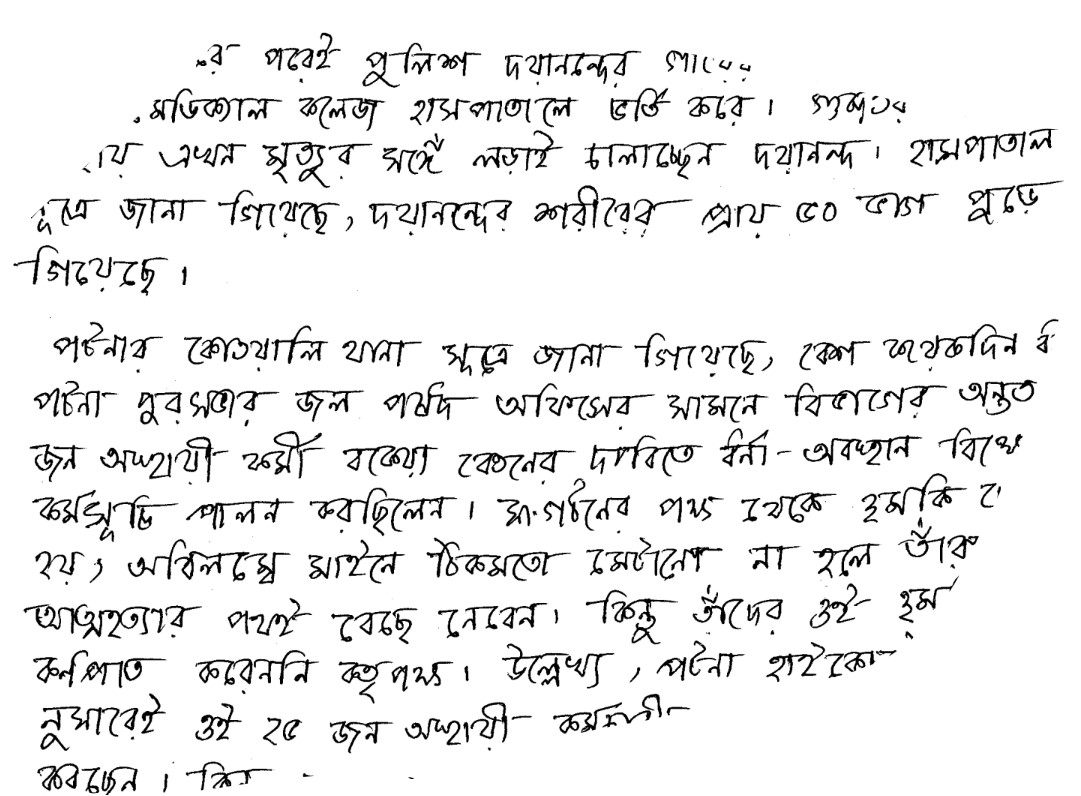 র পরেই পুলিশ দয়ানন্দের
মেডিক্যাল কলেজ হাসপাতালে ভর্তি করে।
য় এখন মৃত্যুর সঙ্গে লড়াই চালাচ্ছেন দয়ানন্দ। হাসপাতাল
সূত্রে জানা গিয়েছে, দয়ানন্দের শরীরের প্রায় ৫০ ভাগ পুড়ে
গিয়েছে।
পটনার কোতয়ালি থানা সূত্রে জানা গিয়েছে, বেশ কয়েকদিন
পটনা পুরসভার জল পর্ষদ অফিসের সামনে বিভাগের অন্তত
জন অস্থায়ী কর্মী বকেয়া বেতনের দাবিতে ধর্না-অবস্থান
কর্মসূচি পালন করছিলেন। সংগঠনের পক্ষ থেকে হুমকি
হয়, অবিলম্বে মাইনে ঠিকমতো মেটানো না হলে তাঁরা
আত্মহত্যার পথই বেছে নেবেন। কিন্তু তাঁদের ওই হুম
কর্ণপাত করেননি কর্তৃপক্ষ। উল্লেখ্য, পটনা হাইকো
নুসারেই ওই ২৫ জন অস্থায়ী
করছেন।